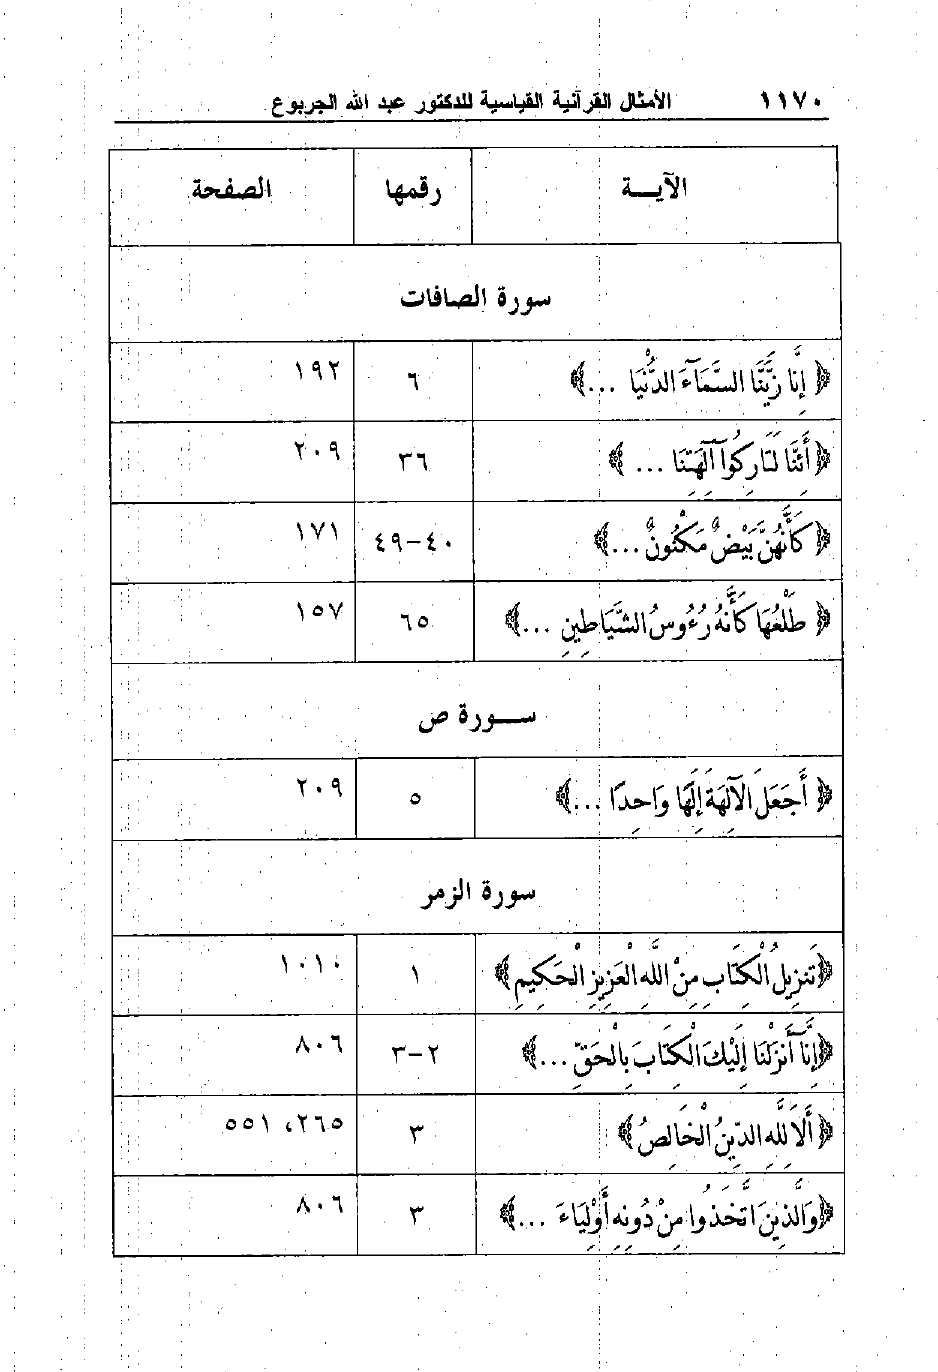 ١١٧٠ الأمثال القرآنية القياسية للدكتور عبد الله الجربوع
الآيـــة رقمها الصفحة
سورة الصافات
﴿ إِنَّا زَيَّنَّا السَّمَآءَ الدُّنْيَا ...﴾ ٦ ١٩٢
﴿أَئِنَّا لَتَارِكُوا آلِهَتِنَا ... ﴾ ٣٦ ٢٠٩
﴿كَأَنَّهُنَّ بَيْضٌ مَكْنُونٌ...﴾ ٤٠–٤٩ ١٧١
﴿ طَلْعُهَا كَأَنَّهُ رُءُوسُ الشَّيَاطِينِ ...﴾ ٦٥ ١٥٧
ســـورة ص
﴿ أَجَعَلَ الآلِهَةَ إِلَهًا وَاحِدًا ...﴾ ٥ ٢٠٩
سورة الزمر
﴿تَنزِيلُ الْكِتَابِ مِنْ اللَّهِ الْعَزِيزِ الْحَكِيمِ﴾ ١ ١٠١٠
﴿إِنَّآ أَنزَلْنَا إِلَيْكَ الْكِتَابَ بِالْحَقِّ ...﴾ ٢–٣ ٨٠٦
﴿ أَلاَ لِلَّهِ الدِّينُ الْخَالِصُ﴾ ٣ ٢٦٥، ٥٥١
﴿وَالَّذِينَ اتَّخَذُوا مِنْ دُونِهِ أَوْلِيَاءَ ...﴾ ٣ ٨٠٦